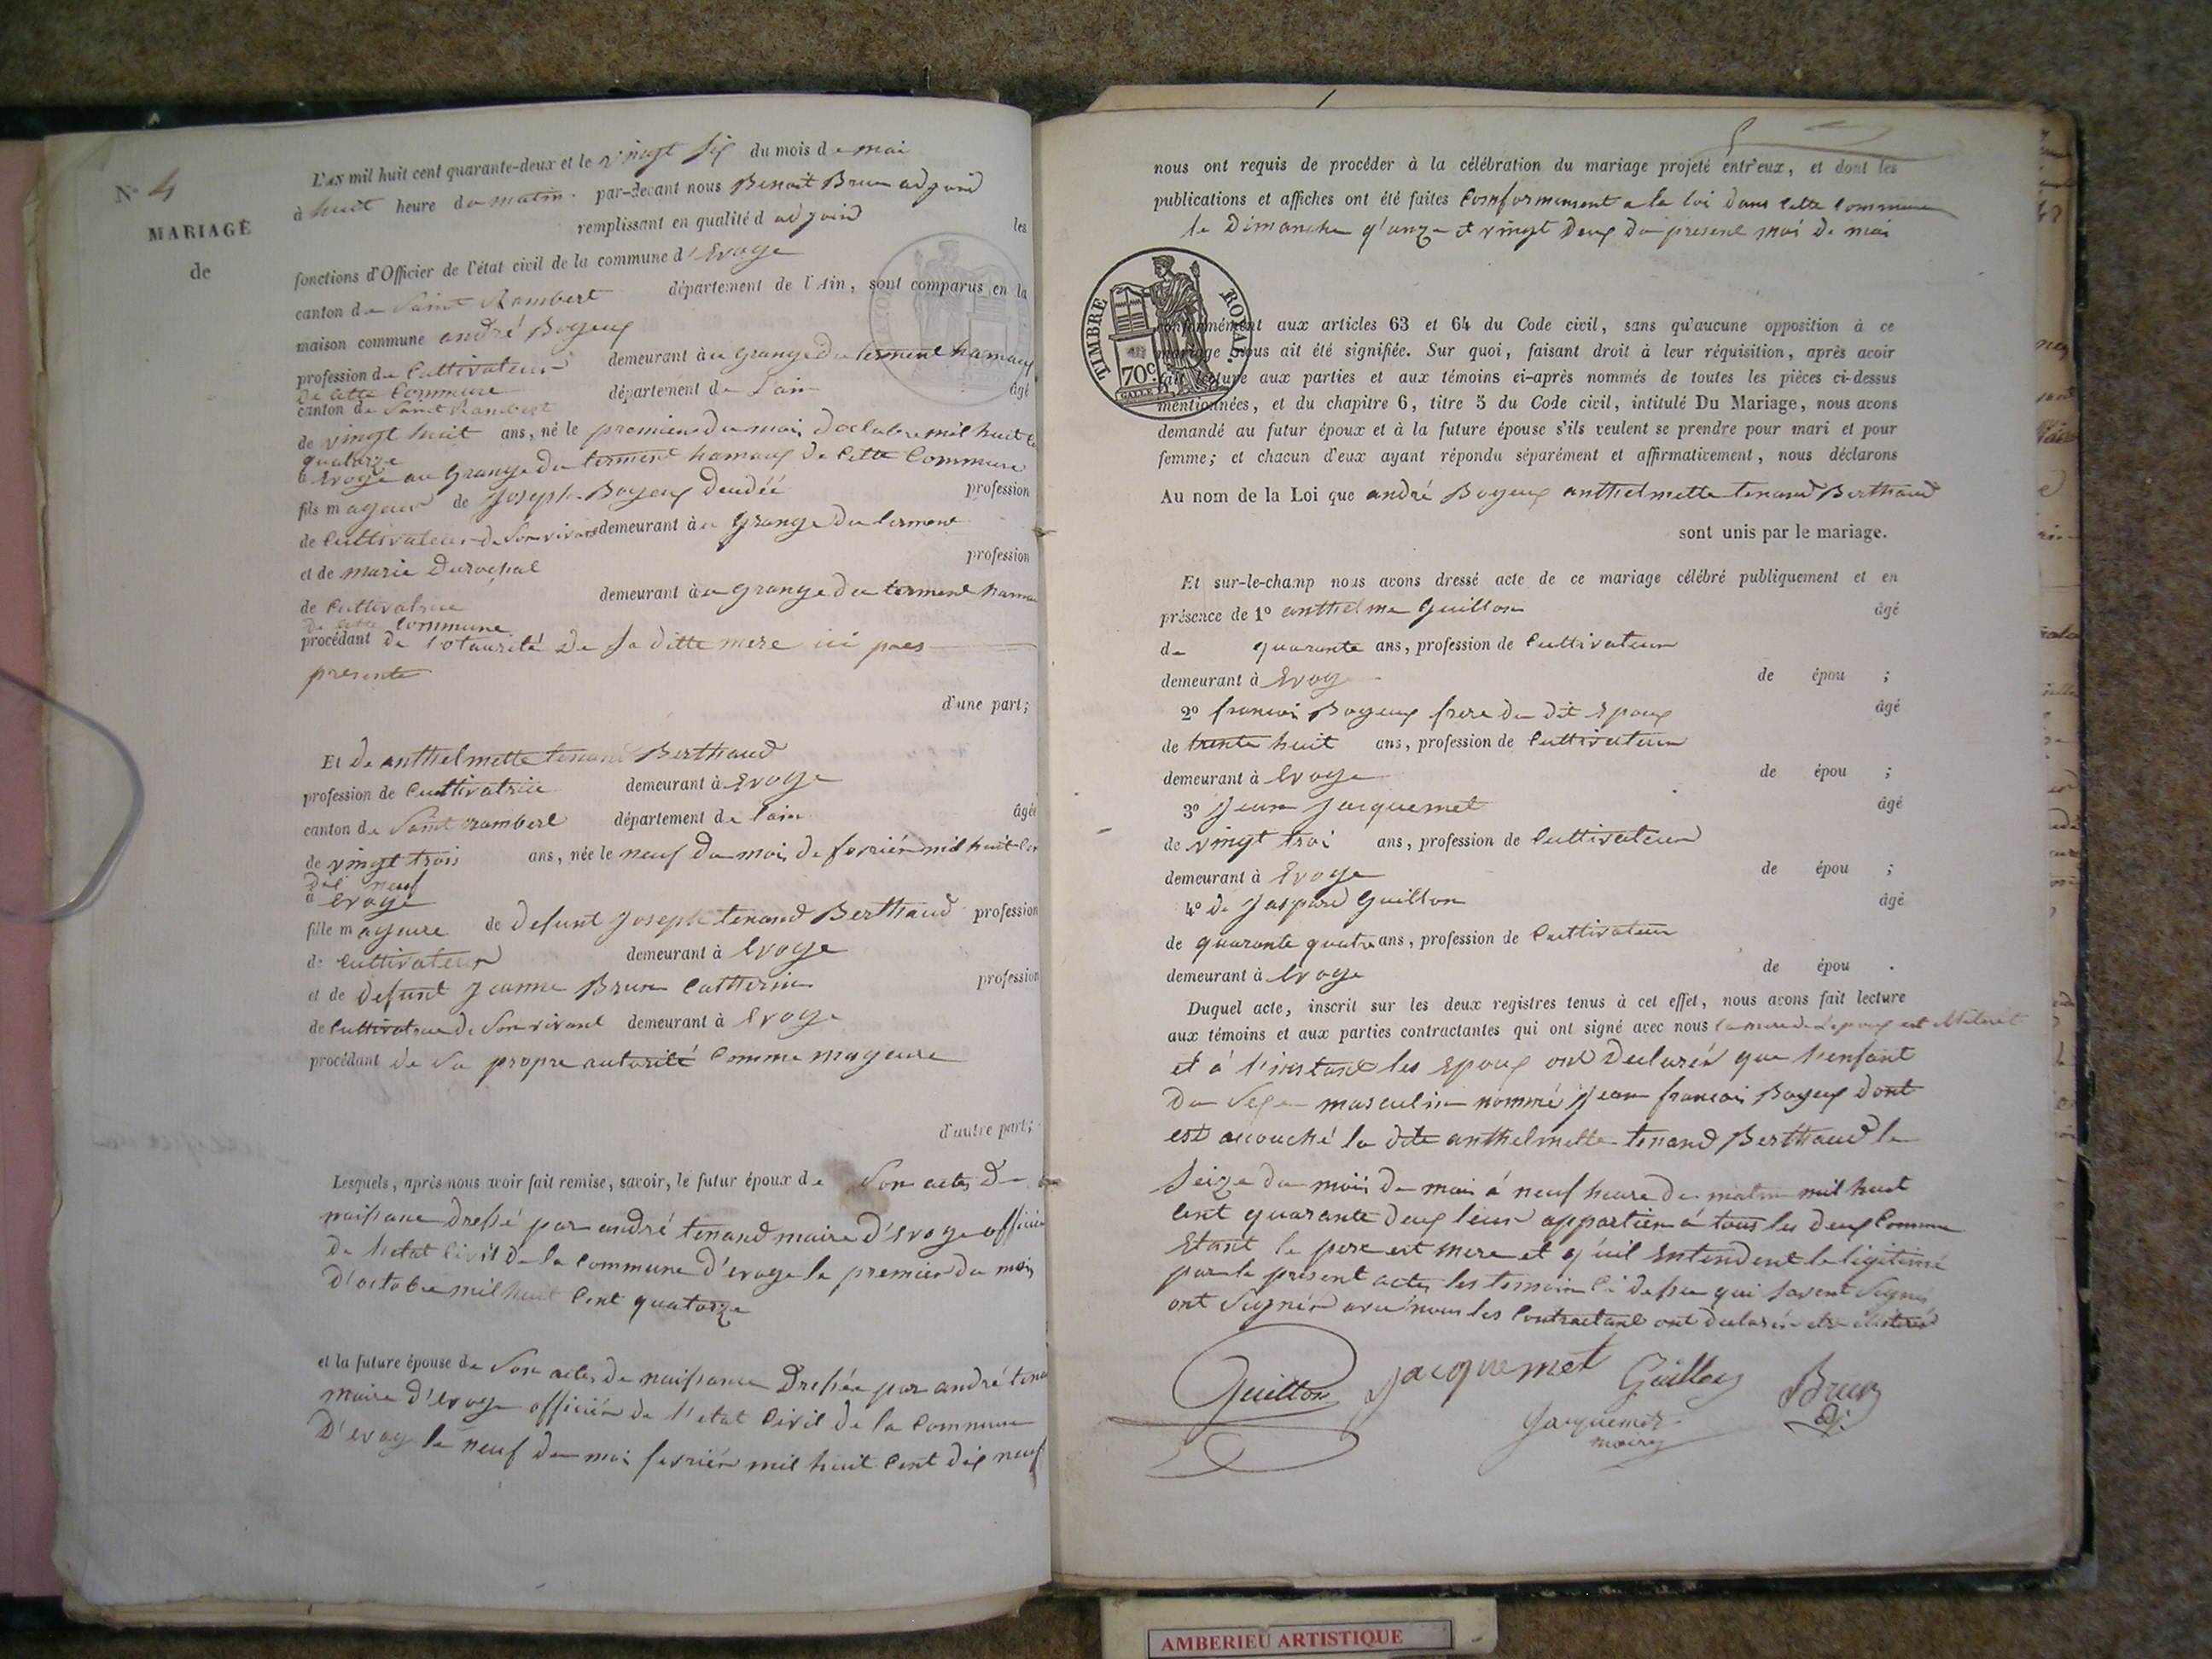 N° 4
MARIAGE
de
L'AN mil huit cent quarante-deux et le vingt six du mois de mai
à huit heure du matin par-devant nous Benoit Brun adjoind
remplissant en qualité d adjoind les
fonctions d'Officier de l'état civil de la commune d'Evoge
canton de Saint Rambert département de l'Ain, sont comparus en la
maison commune andré Bogeux
profession de Cultivateur demeurant à u grange du terment hamaux
de cette Commune
canton de Saint Rambert département de Lain âgé
de vingt huit ans, né le premier du mois d'octobre mil huit C
quatorze
à Evoge au Grange du terment hamaux de Cette Commune
fils mageur de Joseph Bogeux profession
de Cultivateur de Son vivant demeurant à u Grange du terment
et de marie profession
de Cultivatrice demeurant à u grange du terment hamau
de cette Commune
procédant de l'otaurité de sa ditte mere ici pres
presente
d'une part;
Et de anthelmette tenand Berthaud
profession de Cultivatrice demeurant à Evoge
canton de Saint rambert département de lain âgée
de vingt trois ans, née le neuf du mois de fevriér mil huit Cen
dix neuf
à Evoge
fille mageure de defunt Joseph tenand Berthaud profession
de Cultivateur demeurant à Evoge
et de defunt Jeanne Brun Catherin profession
de Cultivatrice de Son vivant demeurant à Evoge
procédant de Sa propre autorité Comme mageure
d'autre part;
Lesquels, après nous avoir fait remise, savoir, le futur époux de Son actes de
naissance dressé par andré tenand maire d'Evoge officié
de l'etat Civil de la Commune d'evoge le premier du mois
d'octobre mil huit Cent quatorze
et la future épouse de Son actes de naissance Dressée par andré tena
maire d'evoge officiér de l'etat Civil de la Commune
D'evoge le neuf du moi fevriér mil huit Cent dix neuf
nous ont requis de procéder à la célébration du mariage projeté entr'eux, et dont les
publications et affiches ont été faites Conformement a la loi dans Cette Commune
le Dimanche q'uinze et vingt deux du present moi de mai
TIMBRE ROYAL.
70c
conformément aux articles 63 et 64 du Code civil, sans qu'aucune opposition à ce
mariage nous ait été signifiée. Sur quoi, faisant droit à leur réquisition, après avoir
fait lecture aux parties et aux témoins ci-après nommés de toutes les pièces ci-dessus
mentionnées, et du chapitre 6, titre 5 du Code civil, intitulé Du Mariage, nous avons
demandé au futur époux et à la future épouse s'ils veulent se prendre pour mari et pour
femme; et chacun d'eux ayant répondu séparément et affirmativement, nous déclarons
Au nom de la Loi que andré Bogeux anthelmette tenand Berthaud
sont unis par le mariage.
Et sur-le-champ nous avons dressé acte de ce mariage célébré publiquement et en
présence de 1° anthelme Guillon âgé
de quarante ans, profession de Cultivateur
demeurant à Evoge de épou ;
2° francois Bogeux frere du dit Epoux âgé
de trente huit ans, profession de Cultivateur
demeurant à Evoge de épou ;
3° Jean Jacquemet âgé
de vingt troi ans, profession de Cultivateur
demeurant à Evoge de épou ;
4° de Jaspard Guillon âgé
de quarante quatre ans, profession de Cultivateur
demeurant à Evoge de épou .
Duquel acte, inscrit sur les deux registres tenus à cet effet, nous avons fait lecture
aux témoins et aux parties contractantes qui ont signé avec nous la mere de Lepoux est
et à l'instant les Epoux ont declarés que l'enfant
du Sexe masculin nommé Jean francois Bogeux dont
est accouché la dite anthelmette tenand Berthaud le
Seize du mois de mai à neuf heure du matin mil huit
Cent quarante deux leur appartien à tous les deux Comme
Etant le pere est mere et q'uil Entendent le légitimé
par le present actes les temoin Ci dessu qui savent Signé
ont Signér avec nous les Contractant ont declarés
Guillon Jacquemet Guillon Brun
adj.
Jacquemet
maire
AMBERIEU ARTISTIQUE